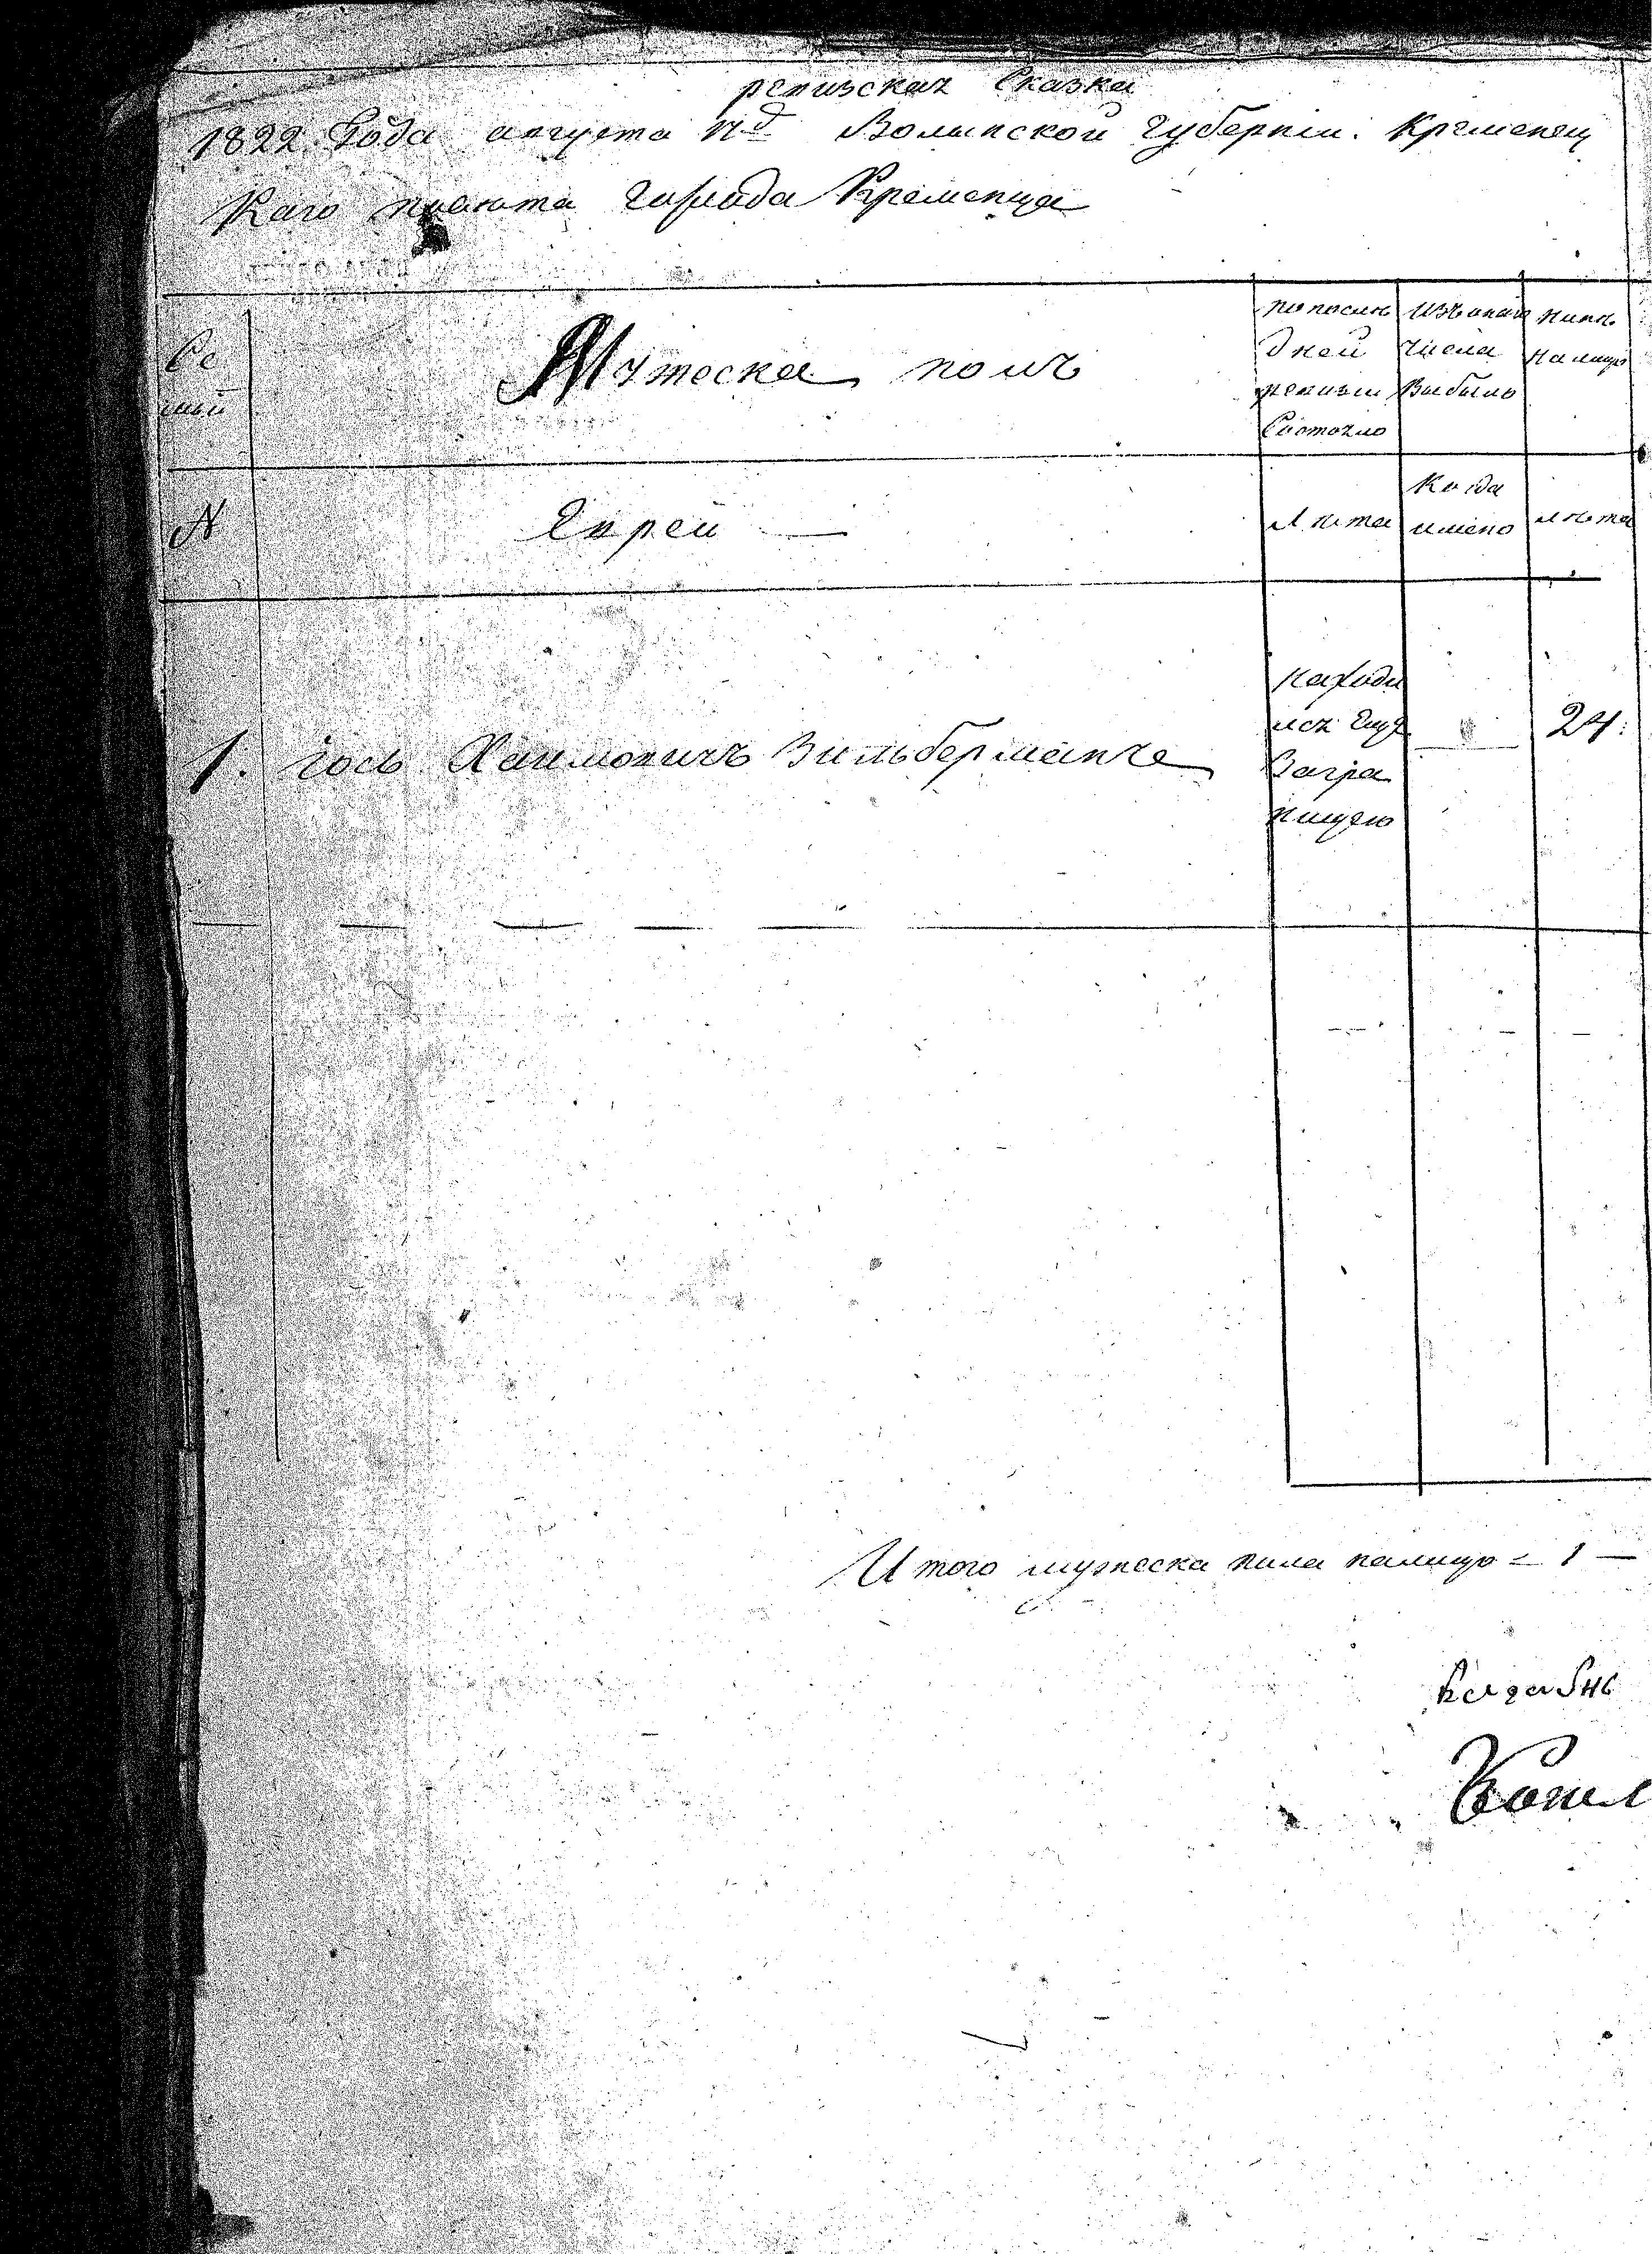 ревизская Сказка
1822 Года августа Волынской губернии. Кременец
Каго повѣта города Кременца
Се
мьи
Мужеска полъ
по послѣ
дней
ревизии
Состояло
изъ онаго
числа
Выбыло
нынѣ
на лицо
N
Евреи
лѣта
Когда
имено
лѣта
1. іось Хаимовичъ Зильберманъ
находи
лся Еще
Загра
ницею
24
Итого мужеска пола налицо = 1 —